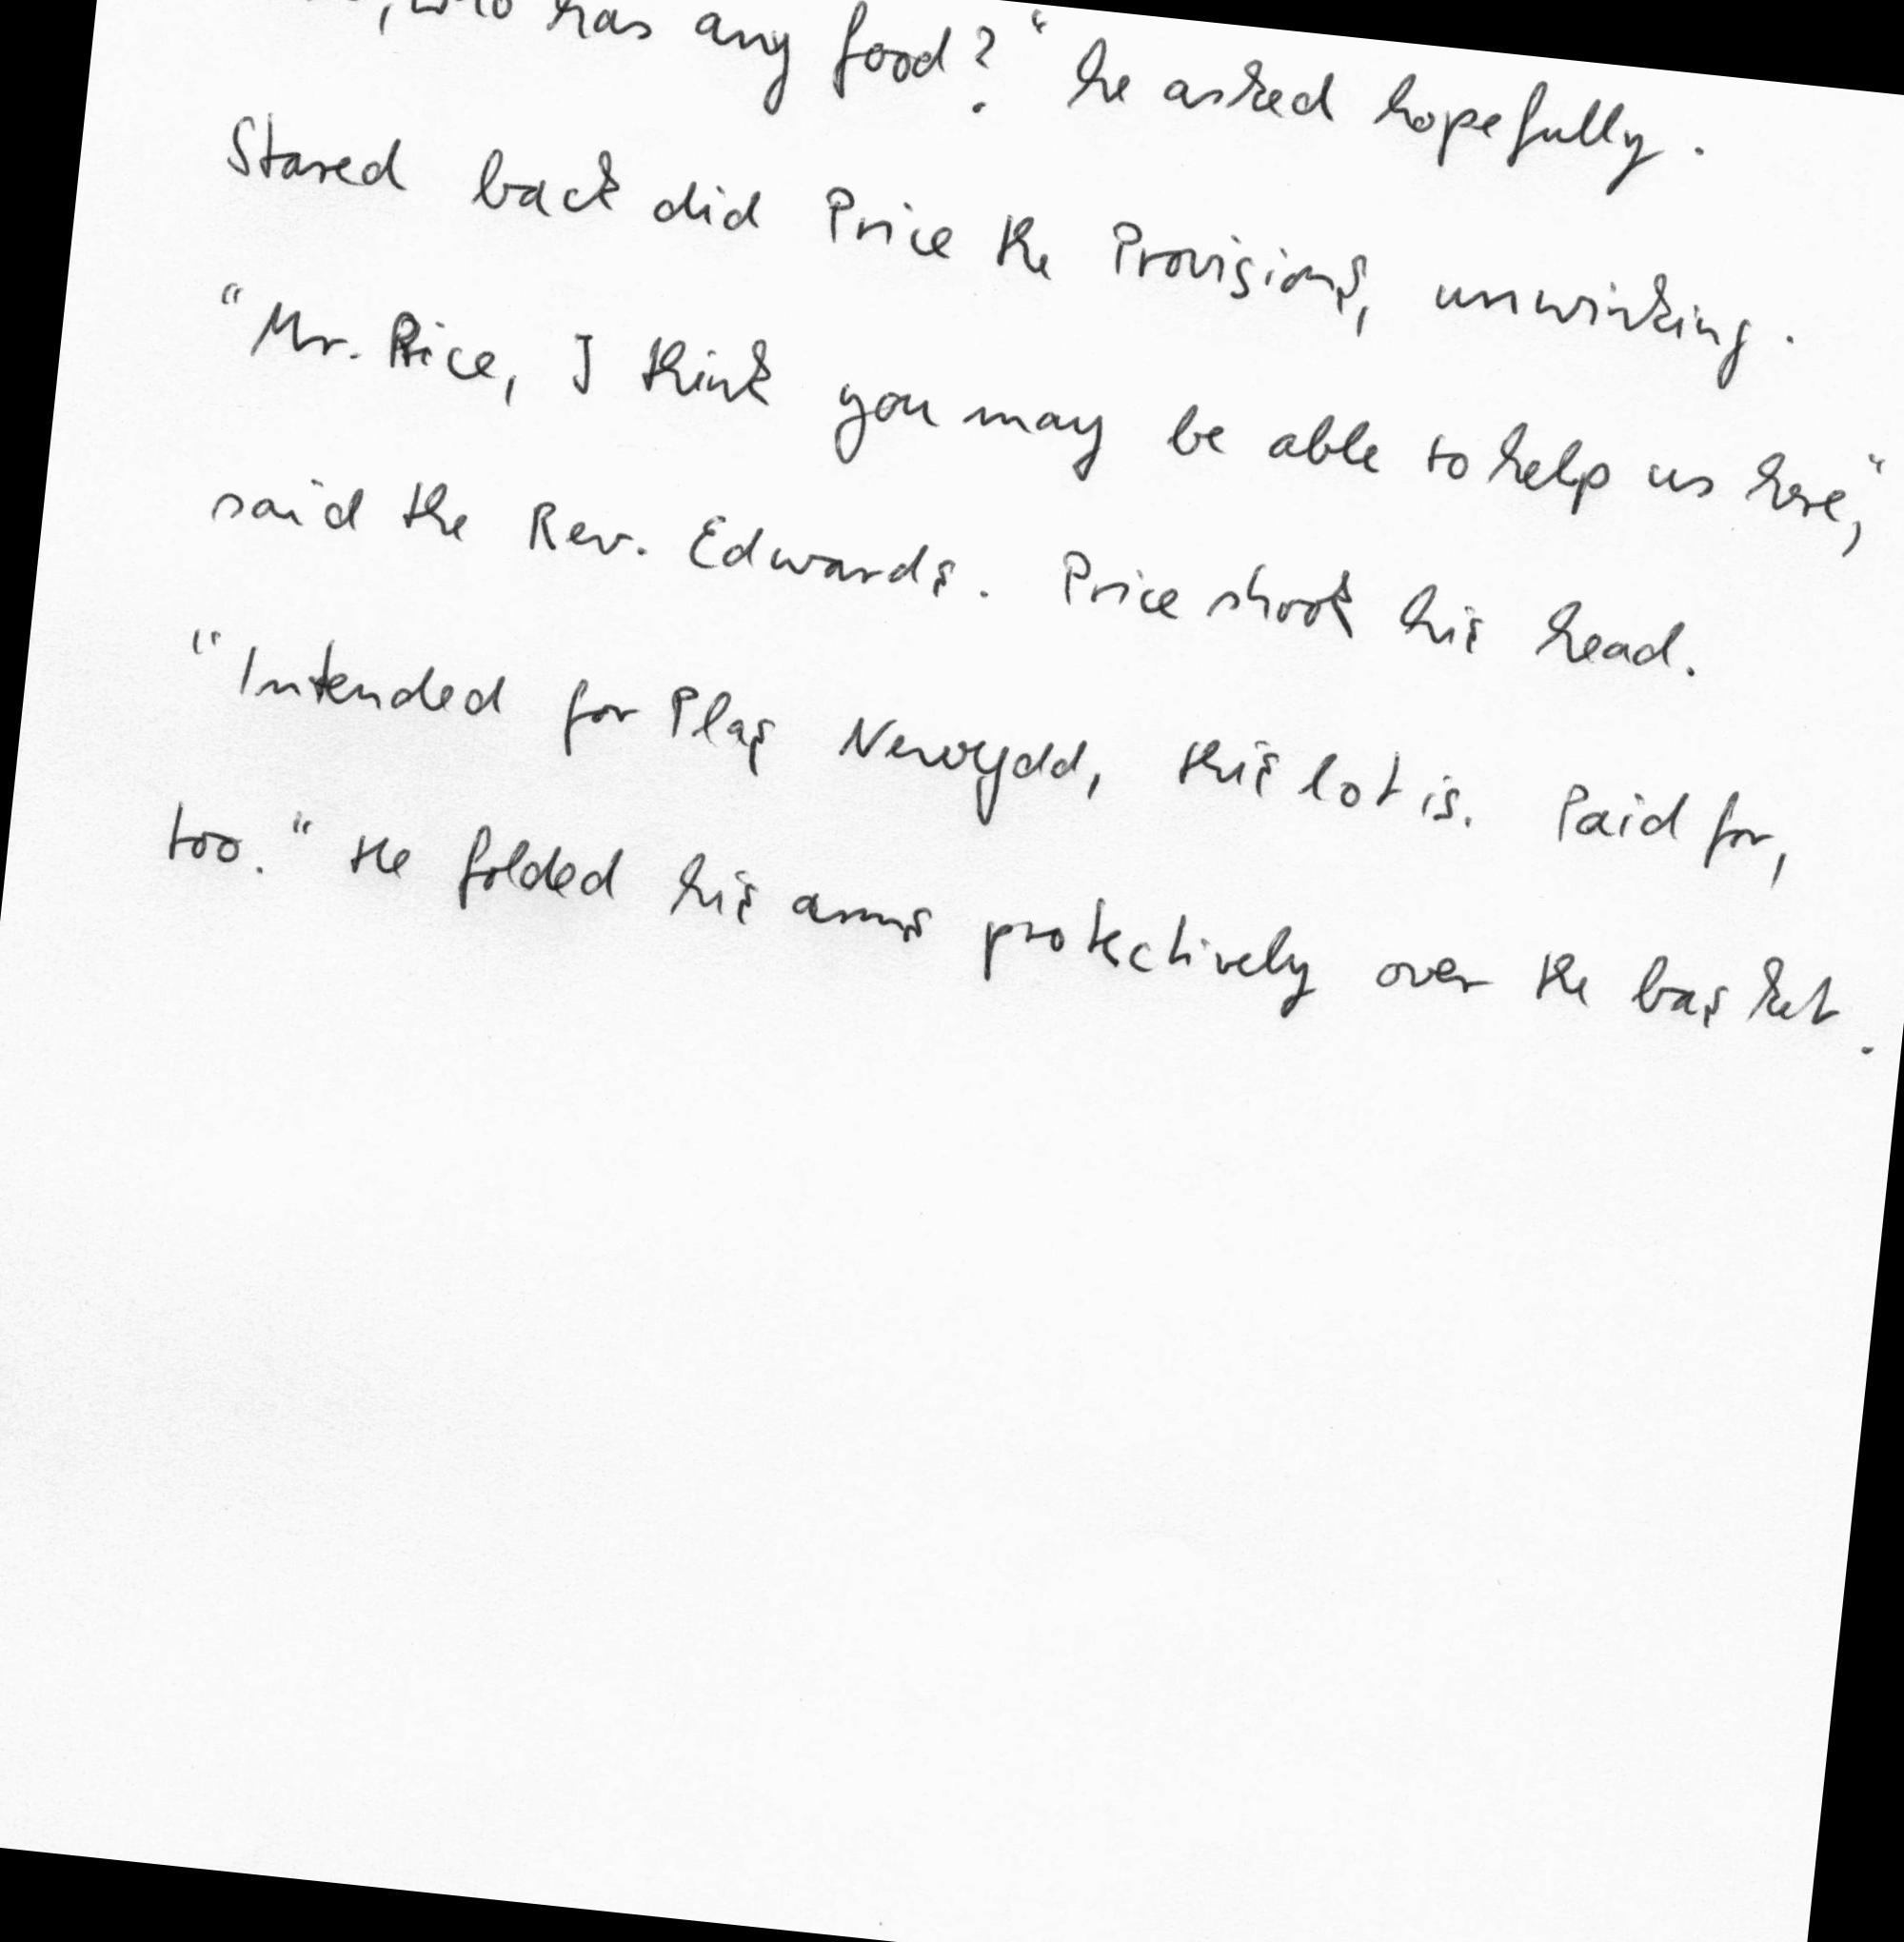 who has any food?" he asked hopefully.
Stared back did Price the Provisions, unwinking.
"Mr. Price, I think you may be able to help us here,"
said the Rev. Edwards. Price shook his head.
"Intended for Plas Newydd, this lot is. Paid for,
too." He folded his arms protectively over the basket.